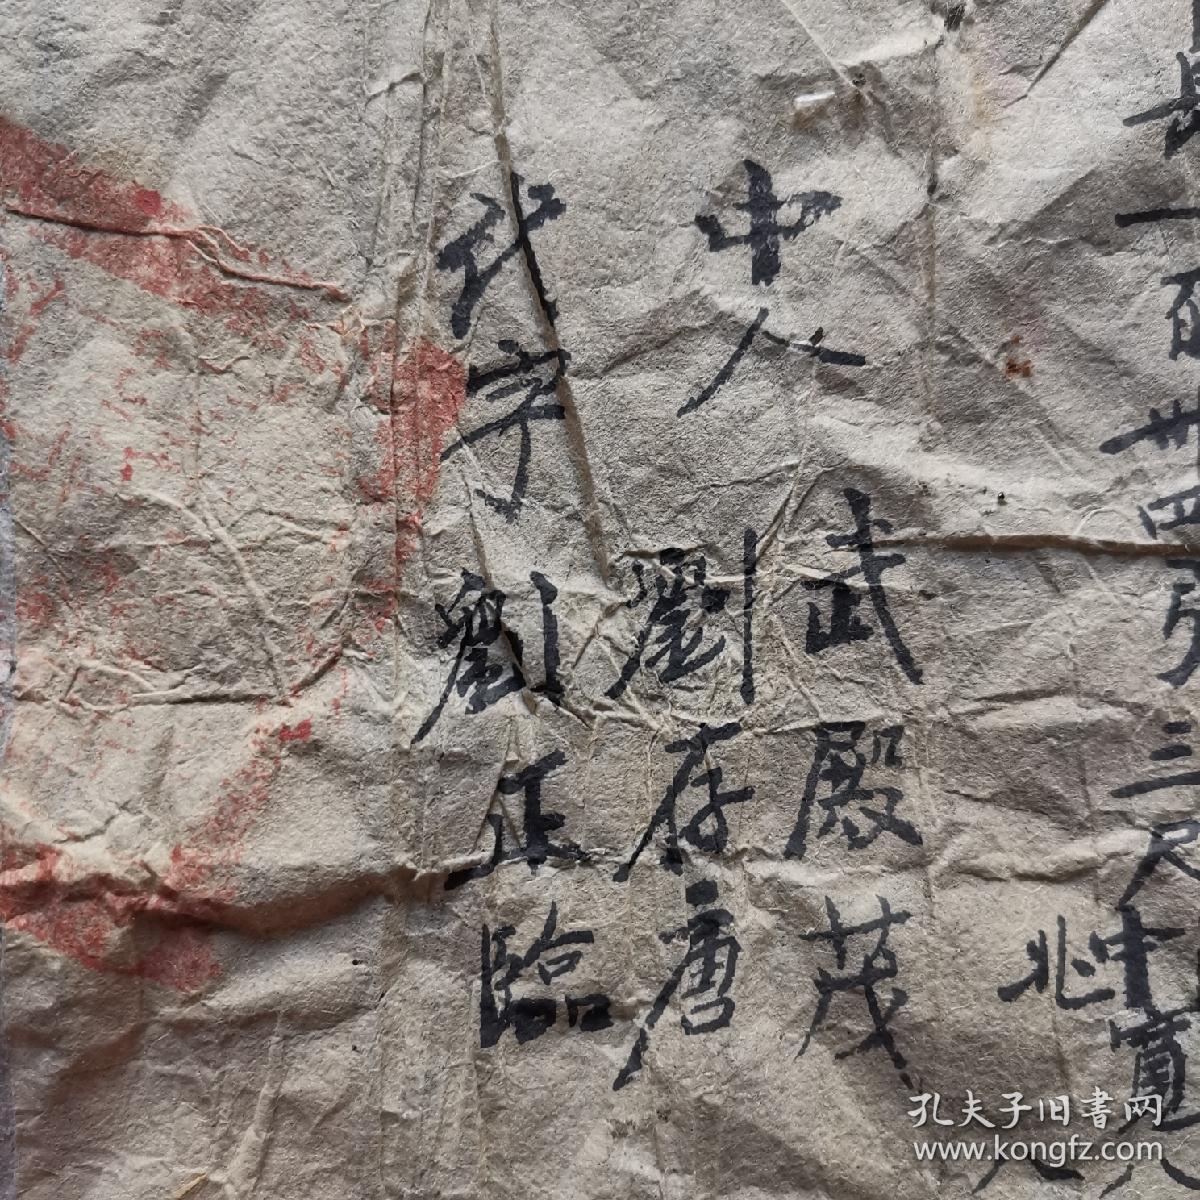 長一百廿四弓三尺中寬
北
中人 武殿茂
劉存唐
代字 劉正臨
孔夫子旧書网
www.kongfz.com